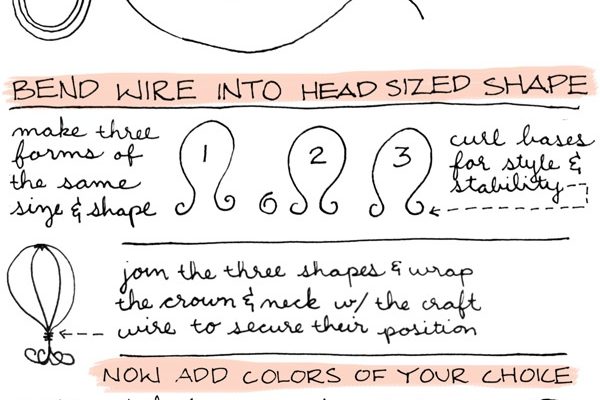 BEND WIRE INTO HEAD SIZED SHAPE
make three
forms of
the same
size & shape
1
2
3
curl bases
for style &
stability
join the three shapes & wrap
the crown & neck w/ the craft
wire to secure their position
NOW ADD COLORS OF YOUR CHOICE